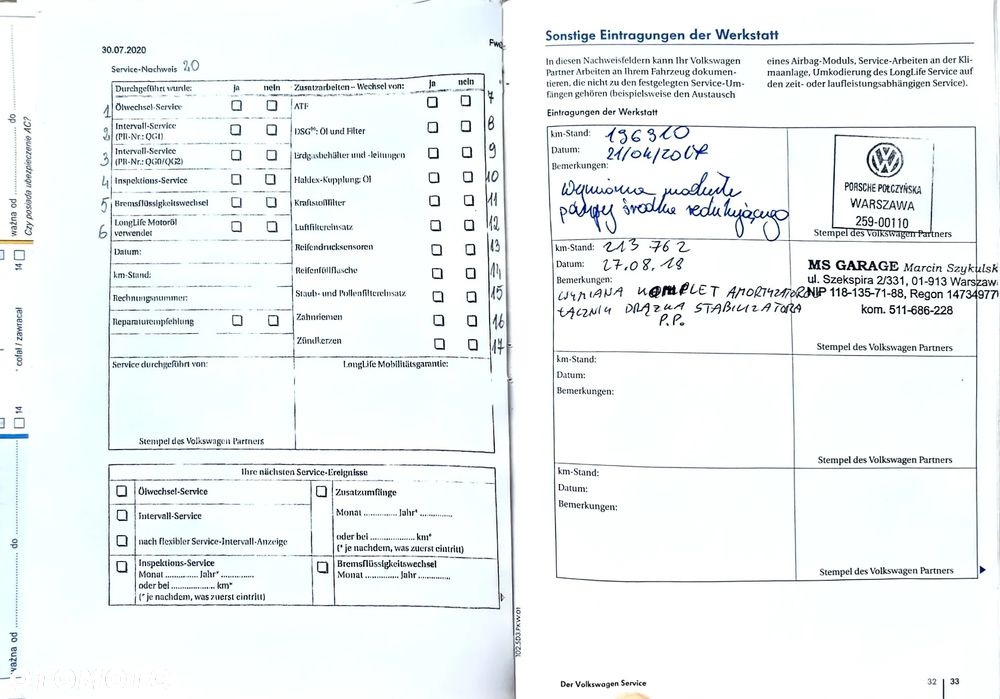 ważna od .................... do
Czy posiada ubezpieczenie AC?
14
cofał / zawracał
14
ważna od .................... do
30.07.2020
Service-Nachweis 20
Durchgeführt wurde: ja nein
1 Ölwechsel-Service
2 Intervall-Service
(PR-Nr.: QG1)
3 Intervall-Service
(PR-Nr.: QG0/QG2)
4 Inspektions-Service
5 Bremsflüssigkeitswechsel
6 LongLife Motoröl
verwendet
Datum:
km-Stand:
Rechnungsnummer:
Reparaturempfehlung
Zusatzarbeiten – Wechsel von: ja nein
ATF 7
DSG®: Öl und Filter 8
Erdgasbehälter und -leitungen 9
Haldex-Kupplung: Öl 10
Kraftstofffilter 11
Luftfiltereinsatz 12
Reifendrucksensoren 13
Reifenfüllflasche 14
Staub- und Pollenfiltereinsatz 15
Zahnriemen 16
Zündkerzen 17
Service durchgeführt von:
LongLife Mobilitätsgarantie:
Stempel des Volkswagen Partners
Ihre nächsten Service-Ereignisse
Ölwechsel-Service
Intervall-Service
nach flexibler Service-Intervall-Anzeige
Inspektions-Service
Monat ............ Jahr* ............
oder bei ................ km*
(* je nachdem, was zuerst eintritt)
Zusatzumfänge
Monat ............ Jahr* ............
oder bei ................ km*
(* je nachdem, was zuerst eintritt)
Bremsflüssigkeitswechsel
Monat ............ Jahr ............
Sonstige Eintragungen der Werkstatt
In diesen Nachweisfeldern kann Ihr Volkswagen
Partner Arbeiten an Ihrem Fahrzeug dokumen-
tieren, die nicht zu den festgelegten Service-Um-
fängen gehören (beispielsweise den Austausch
eines Airbag-Moduls, Service-Arbeiten an der Kli-
maanlage, Umkodierung des LongLife Service auf
den zeit- oder laufleistungsabhängigen Service).
Eintragungen der Werkstatt
km-Stand: 196310
Datum: 21/04/2017
Bemerkungen:
Wymiona modułu
pompy środka redukującego
PORSCHE POŁCZYŃSKA
WARSZAWA
259-00110
Stempel des Volkswagen Partners
km-Stand: 213 762
Datum: 27.08.18
Bemerkungen:
WYMIANA KOMPLET AMORTYZATORO
ŁĄCZNIK DRĄŻKA STABILIZATORA
P.P.
MS GARAGE Marcin Szykulsk
ul. Szekspira 2/331, 01-913 Warszaw
NIP 118-135-71-88, Regon 1473497
kom. 511-686-228
Stempel des Volkswagen Partners
km-Stand:
Datum:
Bemerkungen:
Stempel des Volkswagen Partners
km-Stand:
Datum:
Bemerkungen:
Stempel des Volkswagen Partners
102.5D3.PKW.01
Der Volkswagen Service
32 | 33
OTOMOTO